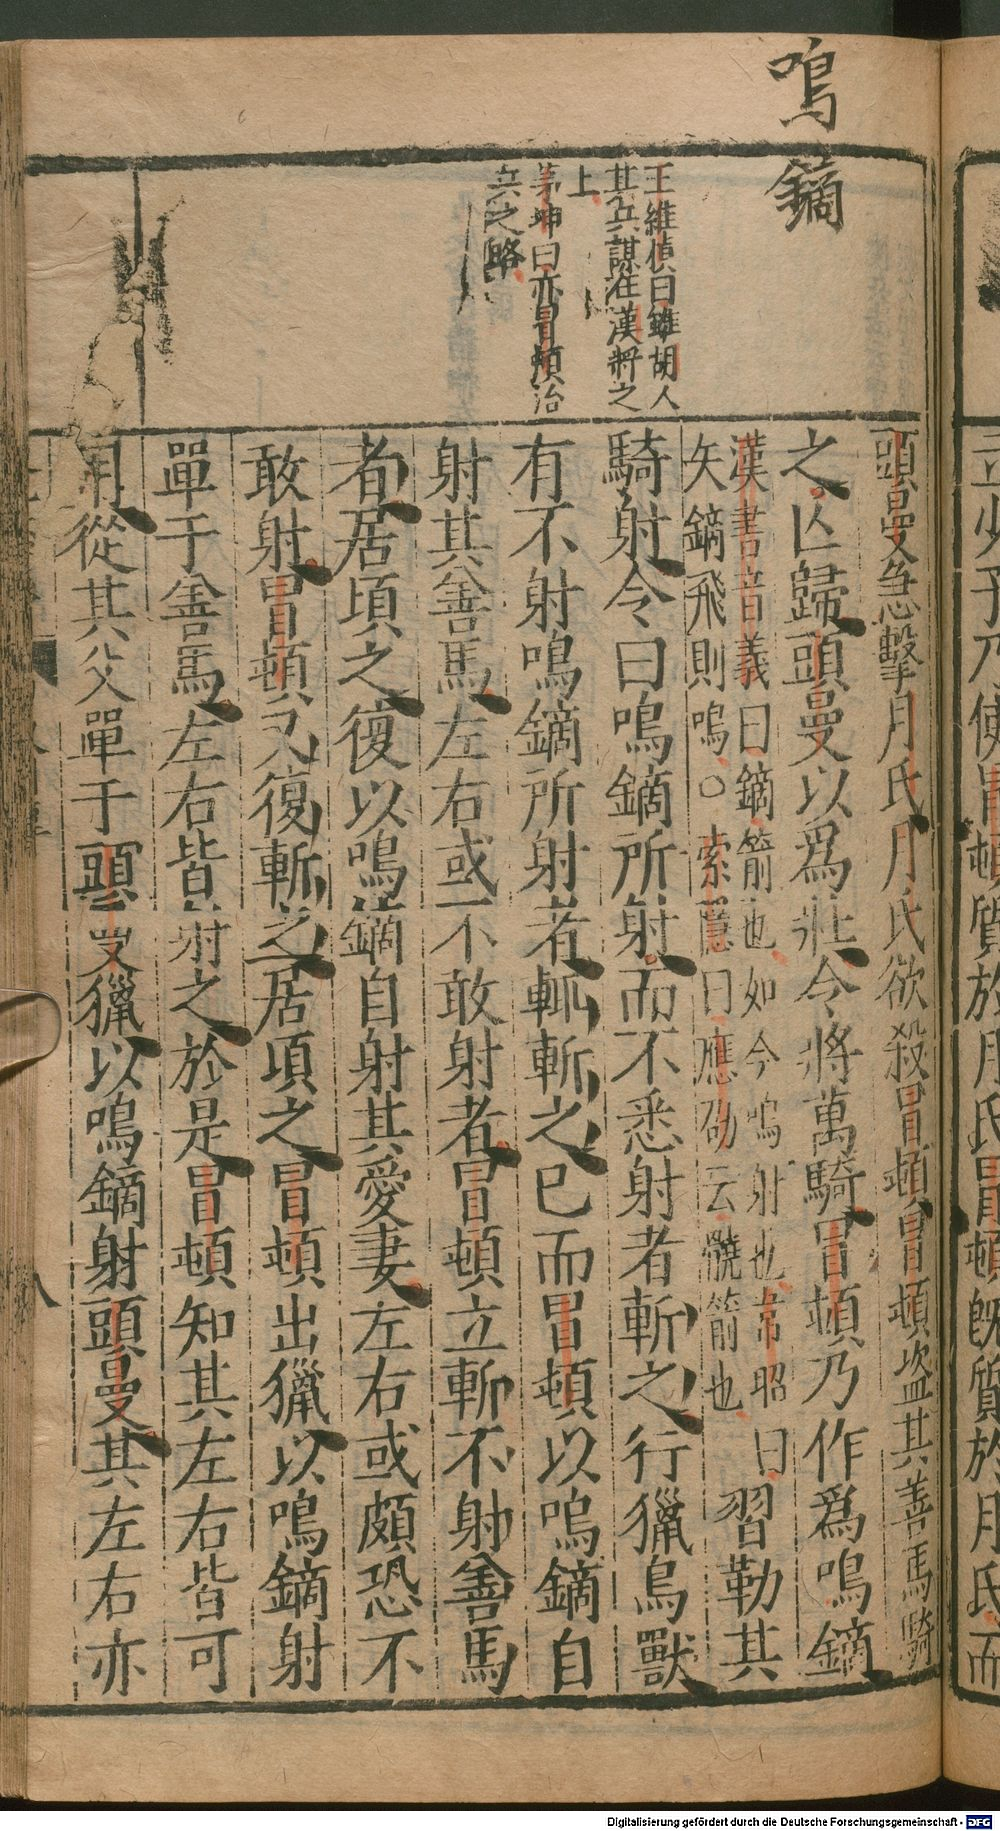 鳴鏑
王維禎曰雖胡人
其兵謀在漢將之
上
茅坤曰亦冒頓治
兵之略
頭曼急擊月氏月氏欲殺冒頓冒頓盜其善馬騎
之亾歸頭曼以爲壯令將萬騎冒頓乃作爲鳴鏑
漢書音義曰鏑箭也如今鳴射也韋昭曰
矢鏑飛則鳴○索隱曰應劭云髐箭也
習勒其
騎射令曰鳴鏑所射而不悉射者斬之行獵鳥獸
有不射鳴鏑所射者輒斬之已而冒頓以鳴鏑自
射其善馬左右或不敢射者冒頓立斬不射善馬
者居頃之復以鳴鏑自射其愛妻左右或頗恐不
敢射冒頓又復斬之居頃之冒頓出獵以鳴鏑射
單于善馬左右皆射之於是冒頓知其左右皆可
用從其父單于頭曼獵以鳴鏑射頭曼其左右亦
八
立少子乃使冒頓質於月氏冒頓旣質於月氏而
Digitalisierung gefördert durch die Deutsche Forschungsgemeinschaft - DFG